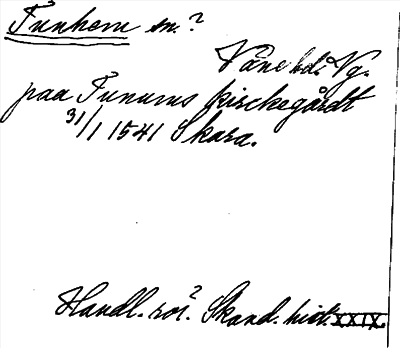 Tunhem sn.?
Väne hd. Vg.
paa Tunums kirckegårdt
31/1 1541 Skara.
Handl. rör.? Skand. hist. XXIX.